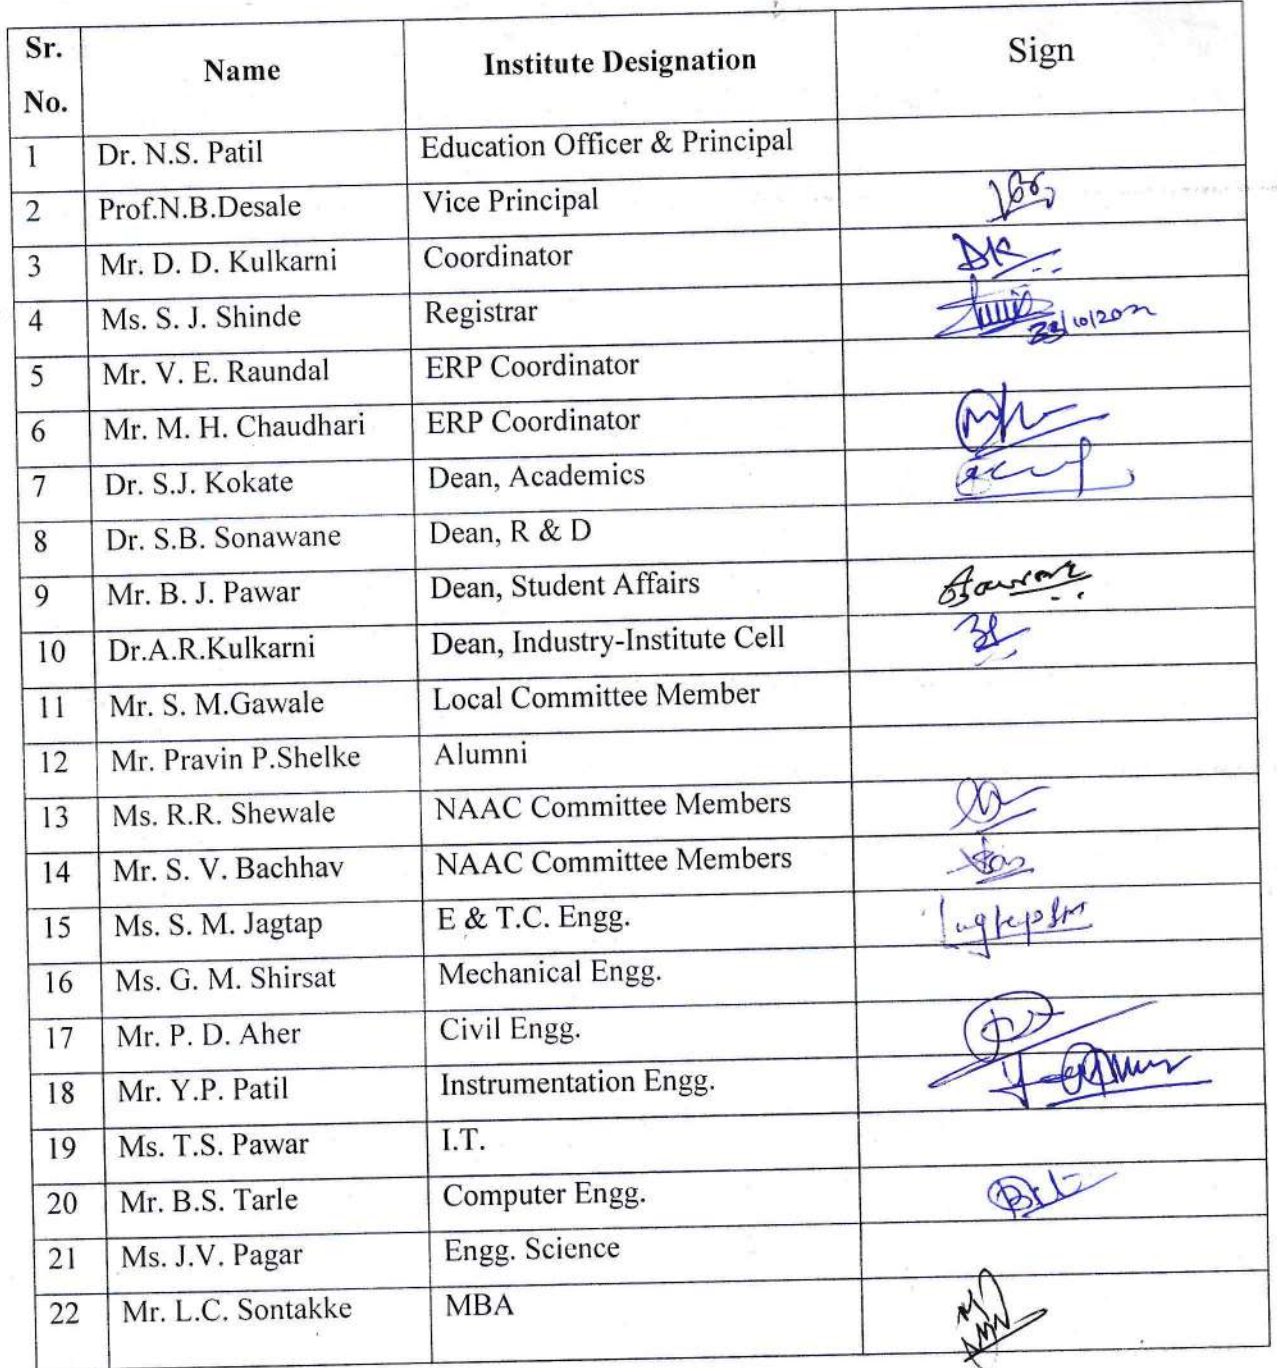 Sr. No. Name Institute Designation Sign
1 Dr. N.S. Patil Education Officer & Principal
2 Prof.N.B.Desale Vice Principal
3 Mr. D. D. Kulkarni Coordinator DK
4 Ms. S. J. Shinde Registrar
5 Mr. V. E. Raundal ERP Coordinator
6 Mr. M. H. Chaudhari ERP Coordinator
7 Dr. S.J. Kokate Dean, Academics
8 Dr. S.B. Sonawane Dean, R & D
9 Mr. B. J. Pawar Dean, Student Affairs
10 Dr.A.R.Kulkarni Dean, Industry-Institute Cell
11 Mr. S. M.Gawale Local Committee Member
12 Mr. Pravin P.Shelke Alumni
13 Ms. R.R. Shewale NAAC Committee Members
14 Mr. S. V. Bachhav NAAC Committee Members
15 Ms. S. M. Jagtap E & T.C. Engg.
16 Ms. G. M. Shirsat Mechanical Engg.
17 Mr. P. D. Aher Civil Engg.
18 Mr. Y.P. Patil Instrumentation Engg.
19 Ms. T.S. Pawar I.T.
20 Mr. B.S. Tarle Computer Engg.
21 Ms. J.V. Pagar Engg. Science
22 Mr. L.C. Sontakke MBA